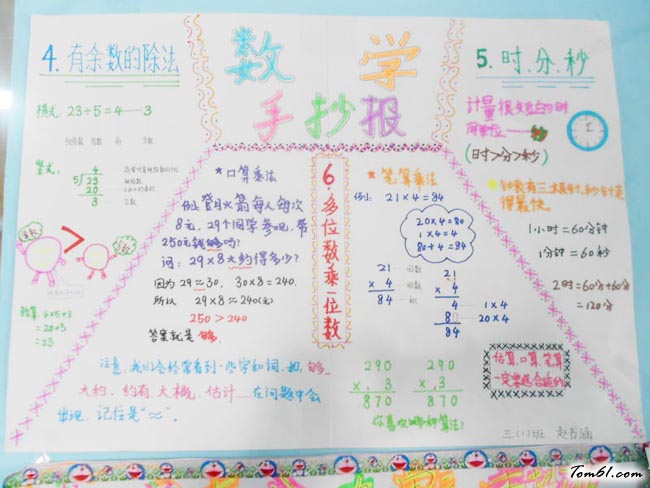 数学
手抄报
4.有余数的除法
横式: 23÷5=4……3
竖式:
4
5√23
20
3
余数
>
除数
验算: 4×5+3
=20+3
=23
5.时、分、秒
计量很短的时
间单位——秒
(时>分>秒)
钟表有三根针,秒针走
得最快。
1小时=60分钟
1分钟=60秒
2时=60分+60分
=120分
6.多位数乘一位数
★口算乘法
例:登月火箭每人每次
8元,29个同学参观,带
250元钱够吗?
问: 29×8大约得多少?
因为 29≈30, 30×8=240.
所以 29×8≈240(元)
250>240
答案就是够.
注意,我们会经常看到一些字和词,如,够
大约、约有、大概、估计……在问题中会
出现,记住是“≈”。
★笔算乘法
例: 21×4=84
20×4=80
1×4=4
80+4=84
21 因数
× 4 因数
84 积
21
× 4
4 1×4
8 20×4
84
290
×, 3
870
290
×,3
870
你喜欢哪种算法?
估算、口算、笔算
一定要选合适的
三(1)班 赵书涵
Tom61.com